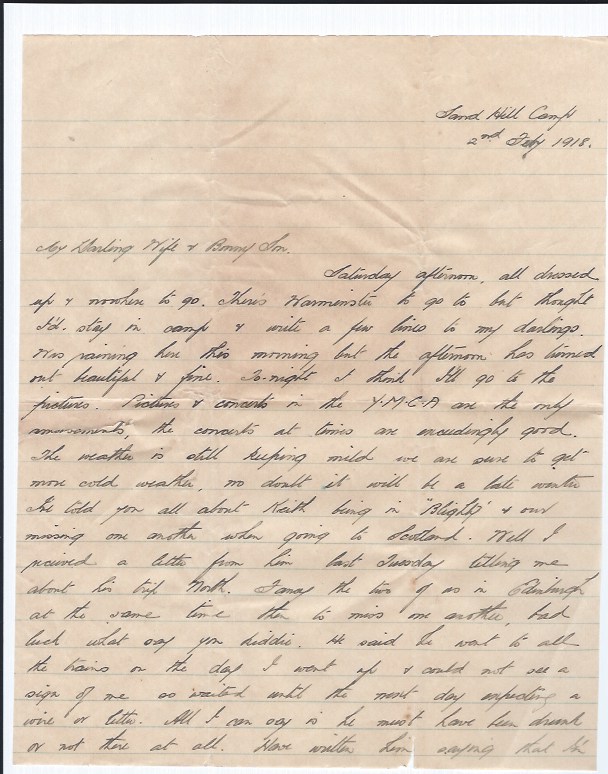 Sand Hill Camp
2nd Feby 1918.
My Darling Wife & Bonny Son.
Saturday afternoon, all dressed
up & nowhere to go. There's Warminster to go to but thought
I'd stay in camp & write a few lines to my darlings.
Was raining here this morning but the afternoon has turned
out beautiful & fine. To-night I think I'll go to the
pictures. Pictures & concerts in the Y-M-C-A are the only
amusements, the concerts at times are exceedingly good.
The weather is still keeping mild we are sure to get
more cold weather, no doubt it will be a late winter
I've told you all about Keith being in "Blighty" & our
missing one another when going to Scotland. Well I
received a letter from him last Tuesday telling me
about his trip North. Fancy the two of us in Edinburgh
at the same time then to miss one another, bad
luck what say you kiddie. He said he went to all
the trains on the day I went up & could not see a
sign of me so waited until the next day expecting a
wire or letter. All I can say is he must have been drunk
or not there at all. Have written him saying that I'm